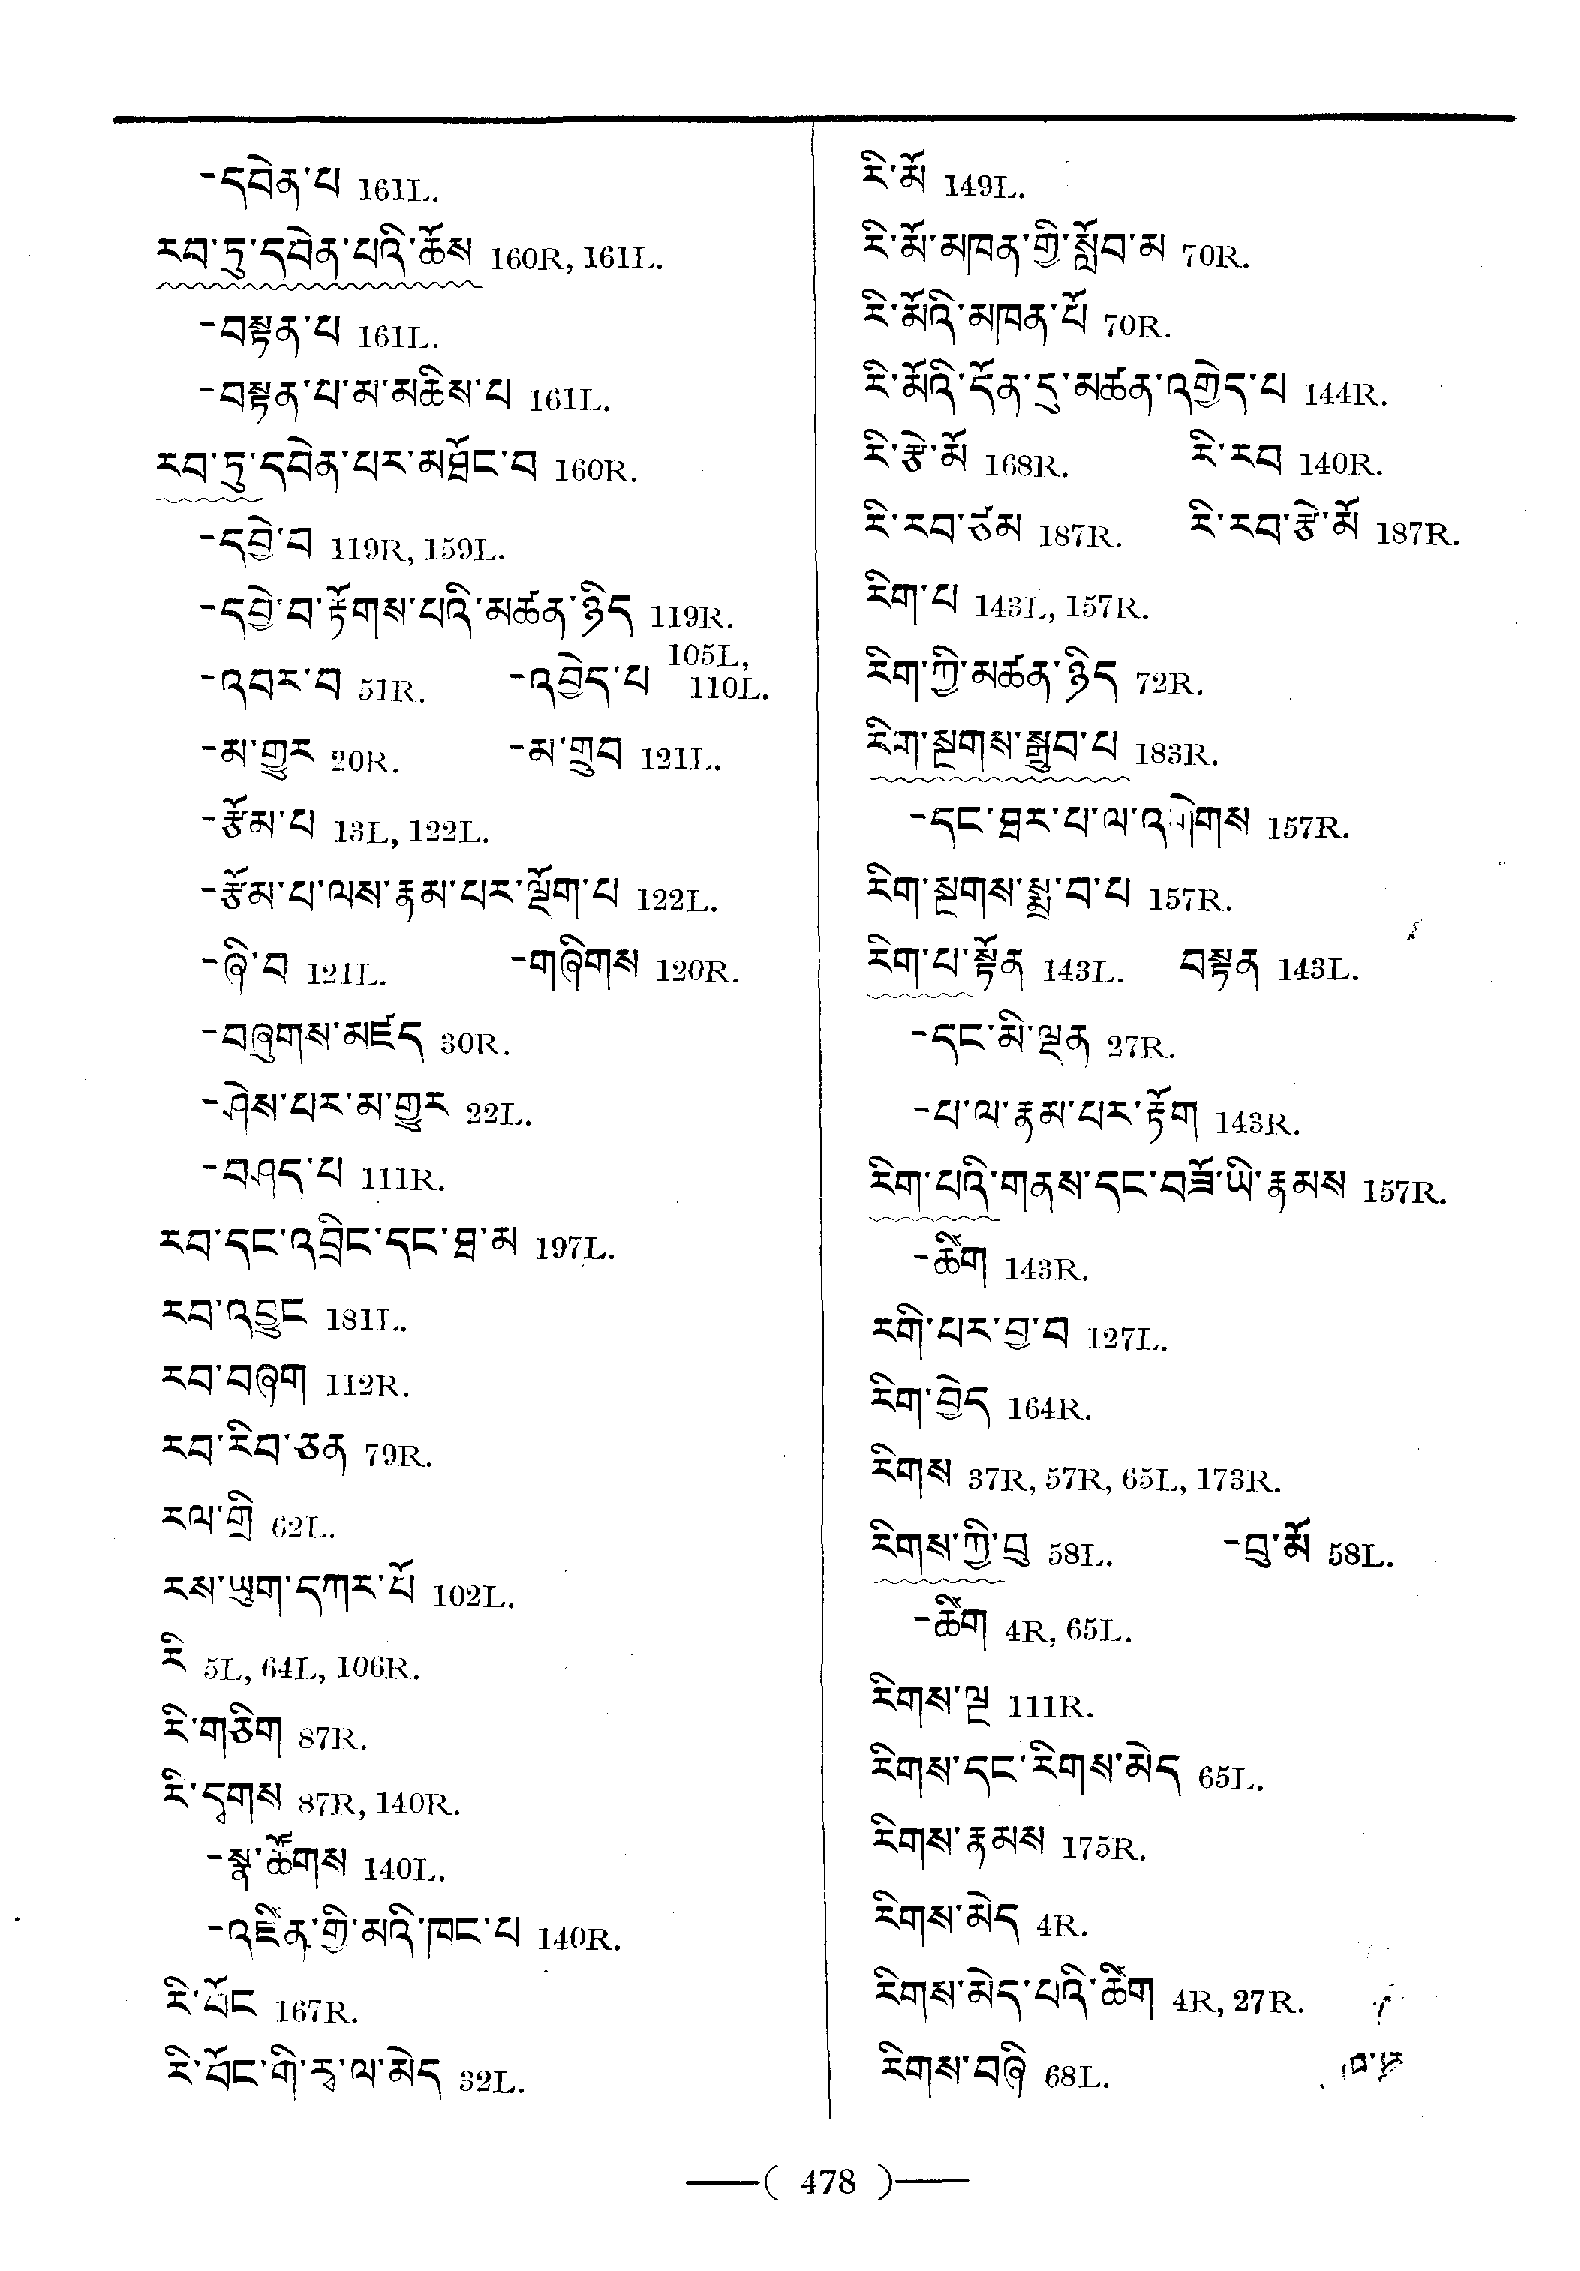 -དབེན་པ 161L.
རབ་ཏུ་དབེན་པའི་ཆོས 160R, 161L.
-བསྟན་པ 161L.
-བསྟན་པ་མ་མཆིས་པ 161L.
རབ་ཏུ་དབེན་པར་མཐོང་བ 160R.
-དབྱེ་བ 119R, 159L.
-དབྱེ་བ་རྟོགས་པའི་མཚན་ཉིད 119R.
-འབར་བ 51R. -འབྱེད་པ 105L, 110L.
-མ་གྱུར 20R. -མ་གྲུབ 121L.
-རྩོམ་པ 13L, 122L.
-རྩོམ་པ་ལས་རྣམ་པར་ལྡོག་པ 122L.
-ཞི་བ 121L. -གཞིགས 120R.
-བཞུགས་མཛད 30R.
-ཤེས་པར་མ་གྱུར 22L.
-བཤད་པ 111R.
རབ་དང་འབྲིང་དང་ཐ་མ 197L.
རབ་འབྱུང 181L.
རབ་བཞག 112R.
རབ་རིབ་ཅན 79R.
རལ་གྲི 62L.
རས་ཡུག་དཀར་པོ 102L.
རི 5L, 64L, 106R.
རི་གཅིག 87R.
རི་དྭགས 87R, 140R.
-སྣ་ཚོགས 140L.
-འཛིན་གྱི་མའི་ཁང་པ 140R.
རི་བོང 167R.
རི་བོང་གི་རྭ་ལ་མེད 32L.
རི་མོ 149L.
རི་མོ་མཁན་གྱི་སློབ་མ 70R.
རི་མོའི་མཁན་པོ 70R.
རི་མོའི་དོན་དུ་མཚན་འགྱེད་པ 144R.
རི་རྩེ་མོ 168R. རི་རབ 140R.
རི་རབ་ཙམ 187R. རི་རབ་རྩེ་མོ 187R.
རིག་པ 143L, 157R.
རིག་ཀྱི་མཚན་ཉིད 72R.
རིག་སྔགས་སྒྲུབ་པ 183R.
-དང་ཐར་པ་ལ་འཤེགས 157R.
རིག་སྔགས་སྨྲ་བ་པ 157R.
རིག་པ་སྟོན 143L. བསྟན 143L.
-དང་མི་ལྡན 27R.
-པ་ལ་རྣམ་པར་རྟོག 143R.
རིག་པའི་གནས་དང་བཟོ་ཡི་རྣམས 157R.
-ཚིག 143R.
རགི་པར་བྱ་བ 127L.
རིག་བྱེད 164R.
རིགས 37R, 57R, 65L, 173R.
རིགས་ཀྱི་བུ 58L. -བུ་མོ 58L.
-ཚིག 4R, 65L.
རིགས་ལྔ 111R.
རིགས་དང་རིགས་མེད 65L.
རིགས་རྣམས 175R.
རིགས་མེད 4R.
རིགས་མེད་པའི་ཚིག 4R, 27R.
རིགས་བཞི 68L.
( 478 )